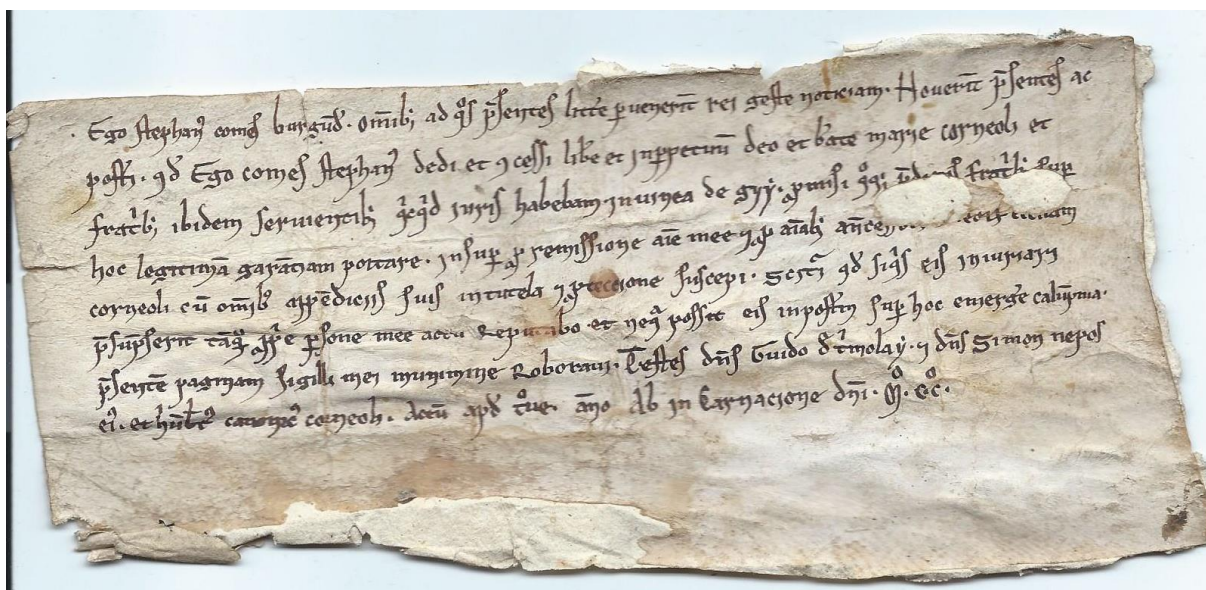 Ego stephan᾿ comes burgūd᾿. om̄ib; ad qͦs p̄sentes litt̄e ꝑvenerīt rei geste noticiam. Noverīt p̄sentes ac
post᾿i. qd̄ Ego comes stephan᾿ dedi et ꝯcessi lib̄e et inꝑpetuū deo et b̄ate marie corneoli et
fr̄atrib; ibidem servientib; qͥcqͥd iuris habebam in vinea de gyy. ꝓmisi qͦq; fr̄atrib; suꝑ
hoc legitimā garātiam portare. insuꝑ ꝓ remissione aīe mee ⁊ ꝓ aīab;
corneoli cū om̄ib; appēdiciis suis in tutela ⁊ ꝓteccione suscepi. qd̄ siqͥs eis iniuriam
p̄supserit tāqͣ ꝓp̄e ꝑsone mee actū Reputabo. et neqͣ possit eis inpost᾿ū suꝑ hoc emerḡe calūpnia.
p̄sentē paginam sigilli mei munimine Roboravi. Testes dn̄s Guido d᾿ t᾿molay. ⁊ dn̄s Simon nepos
ei᾿. et hūb᾿t᾿ canonic᾿ corneoli. Actū apd̄ āno Ab in Carnacione dn̄i. Mͦ. CCͦ.